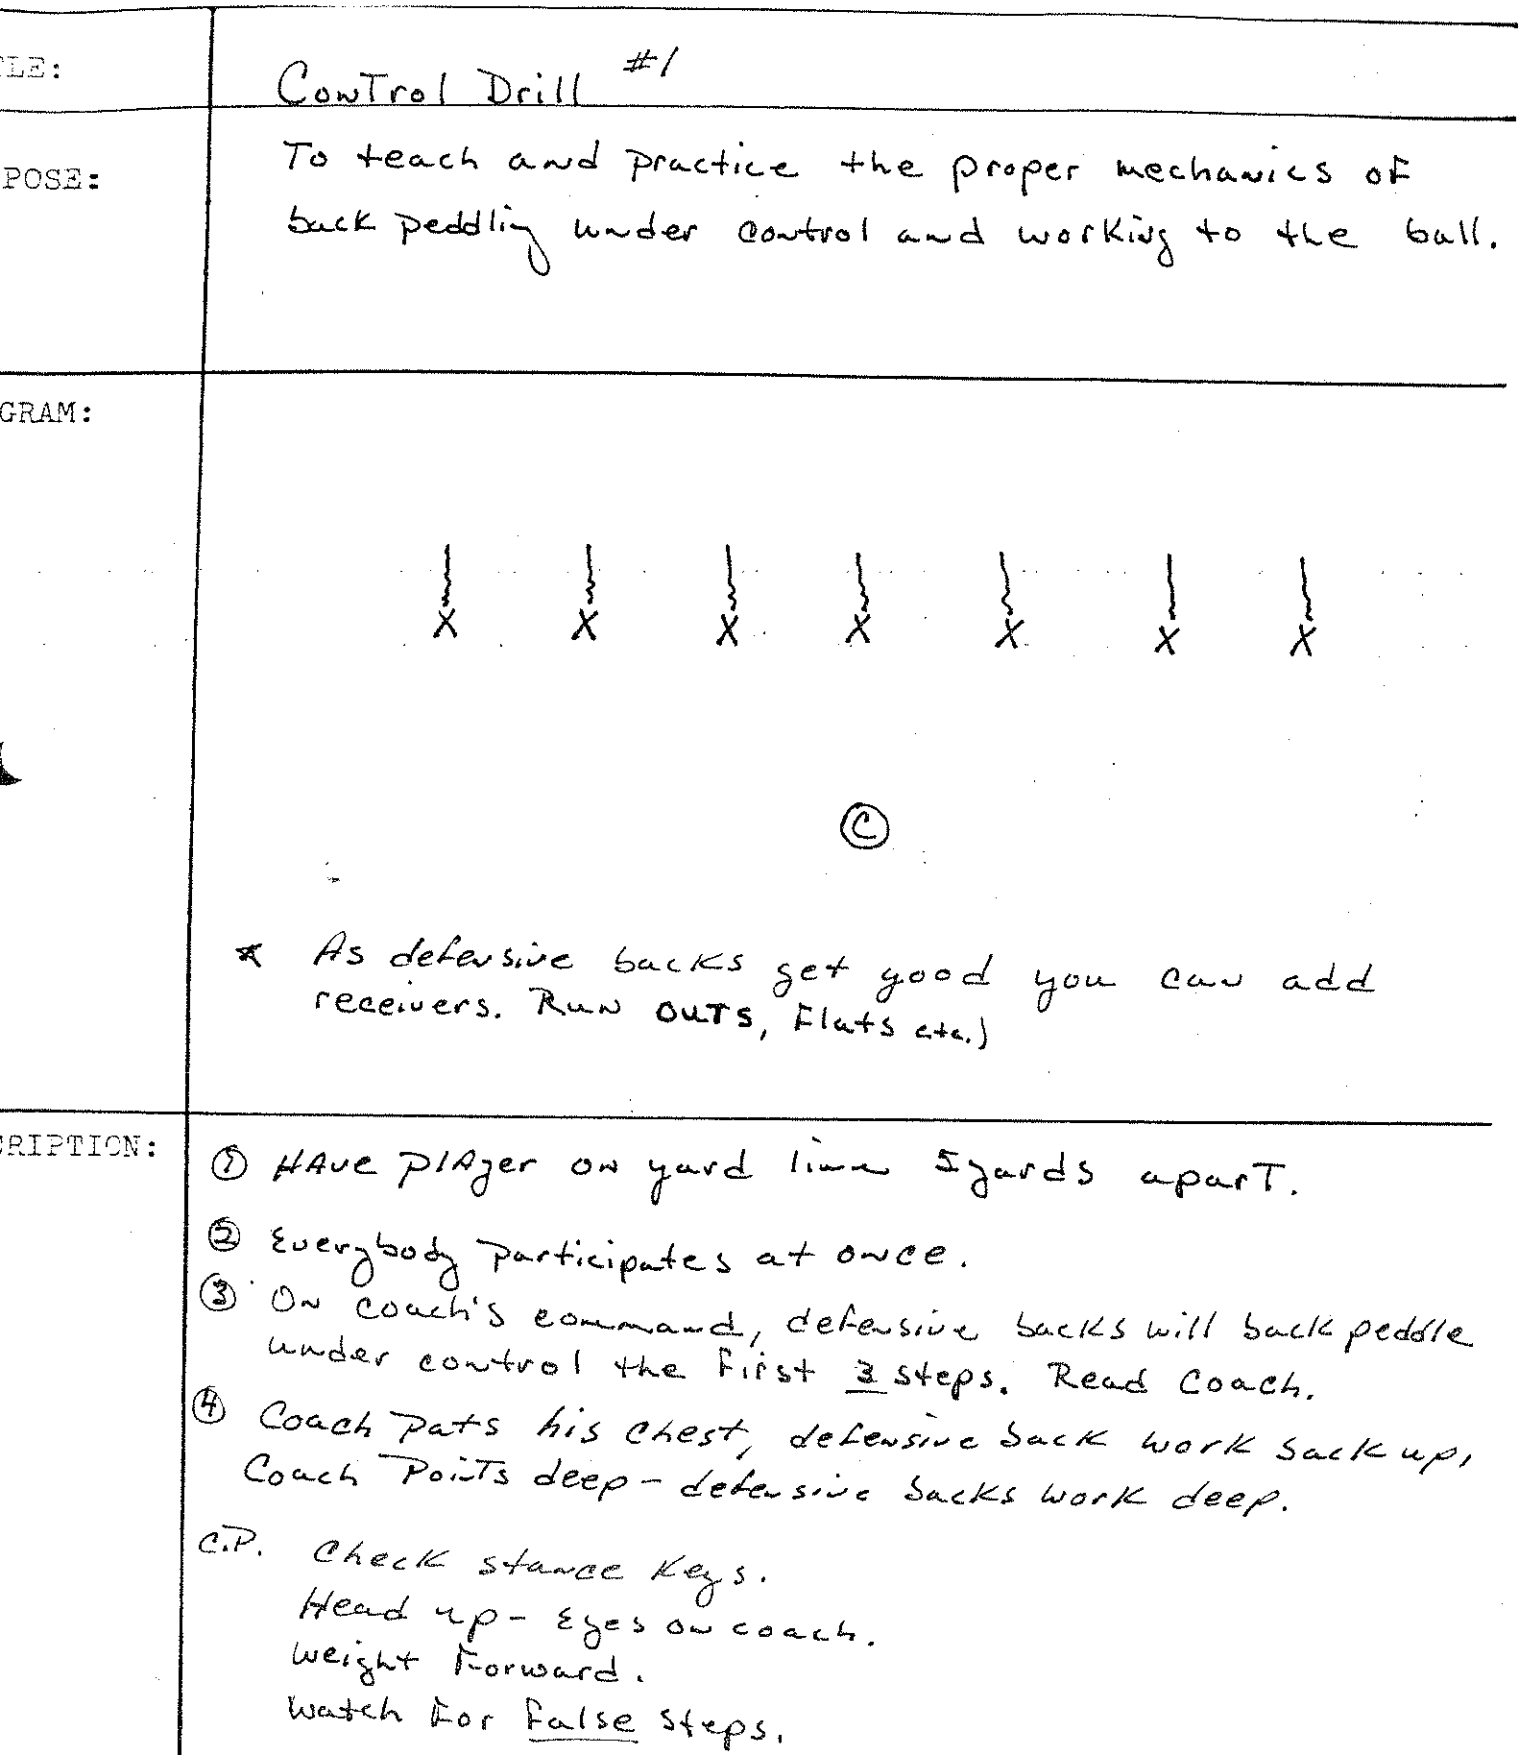 TLE:
Control Drill #1
POSE:
To teach and practice the proper mechanics of
back peddling under control and working to the ball.
GRAM:
X X X X X X X
C
* As defensive backs get good you can add
receivers. Run OUTS, Flats etc.)
CRIPTION:
① HAve plAyer on yard line 5 yards aparT.
② Everybody participates at once.
③ On coach's command, defensive backs will back peddle
under control the first 3 steps. Read Coach.
④ Coach pats his chest, defensive back work back up,
Coach Points deep - defensive backs work deep.
C.P. Check stance Keys.
Head up - Eyes on coach.
Weight Forward.
Watch For False Steps.